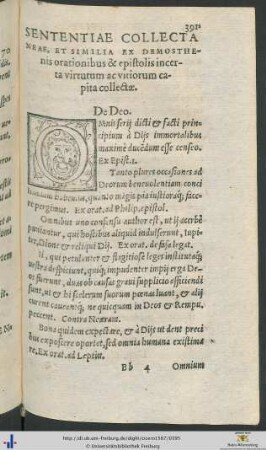 391
SENTENTIAE COLLECTA
NEAE, ET SIMILIA EX DEMOSTHE-
nis orationibus & epistolis incer-
ta virtutum ac vitiorum ca-
pita collectæ.
De Deo.
OMnis serij dicti & facti prin-
cipium à Dijs immortalibus
maximè ducẽdum esse censeo.
Ex Epist. 1.
Tanto plures occasiones ad
Deorum beneuolentiam conci
quanto magis pia iustioraq́; face-
re pergimus. Ex orat. ad Philip. epistol.
Omnibus uno consensu auctor est, ut ij acerbè
puniantur, qui hostibus aliquid indulserunt, Iupi-
ter, Dione & reliqui Dij. Ex orat. de falsa legat.
qui petulanter & flagitiosè leges institutaq́;
uestra despiciunt, quiq́; impudenter impij erga De-
os fuerunt, duas ob causas graui supplicio efficiendi
sunt, ut & hi scelerum suorum pœnas luant, & alij
ne quicquam in Deos & Remp.
peccent. Contra Neæram.
Bona quidem expectare, & à Dijs ut dent preca
exposcere oportet, sed omnia humana existima
re. Ex orat. ad Leptin.
Bb 4 Omnium
http://dl.ub.uni-freiburg.de/diglit/
© Universitätsbibliothek Freiburg
Baden-Württemberg